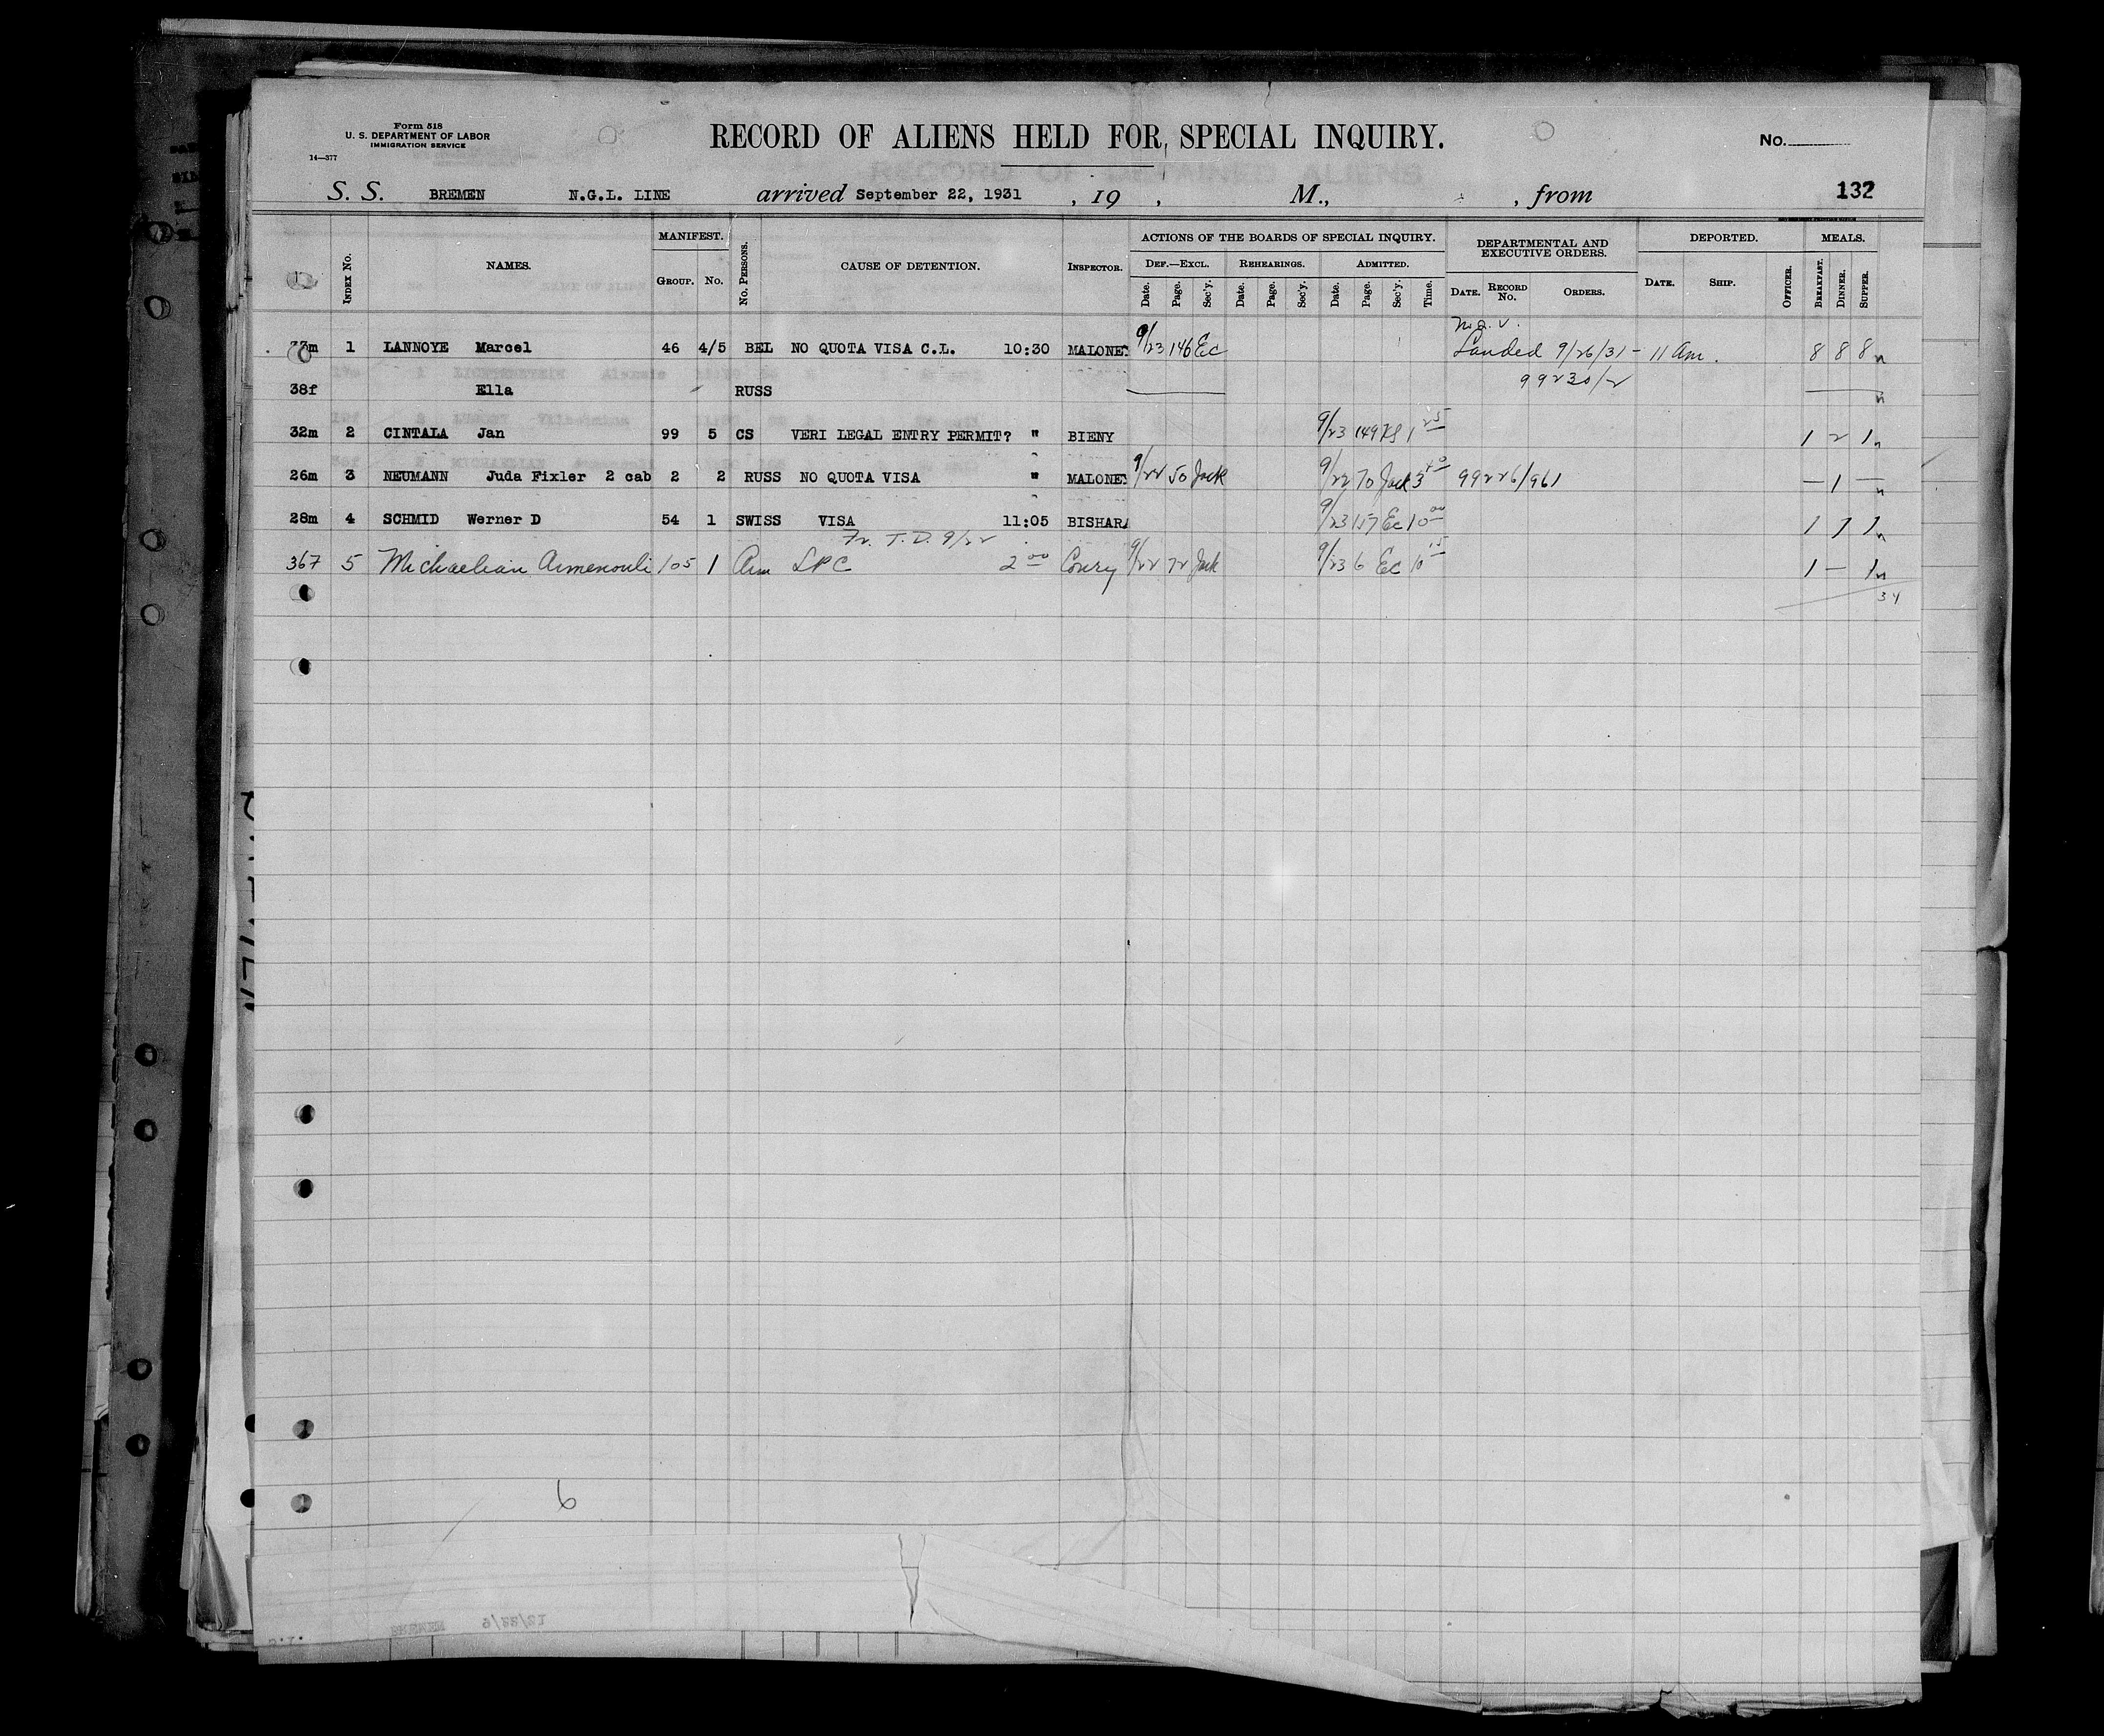 Form 518
U. S. DEPARTMENT OF LABOR
IMMIGRATION SERVICE
14—377
RECORD OF ALIENS HELD FOR SPECIAL INQUIRY.
No.
S. S. BREMEN N.G.L. LINE arrived September 22, 1931 , 19 , M., , from 132
INDEX No. NAMES. MANIFEST. GROUP. No. No. PERSONS. CAUSE OF DETENTION. INSPECTOR. ACTIONS OF THE BOARDS OF SPECIAL INQUIRY. DEPARTMENTAL AND EXECUTIVE ORDERS. DEPORTED. MEALS.
DEF.—EXCL. REHEARINGS. ADMITTED.
Date. Page. Sec'y. Date. Page. Sec'y. Date. Page. Sec'y. Time. DATE. RECORD No. ORDERS. DATE. SHIP. OFFICER. BREAKFAST. DINNER. SUPPER.
33m 1 LANNOYE Marcel 46 4/5 BEL NO QUOTA VISA C.L. 10:30 MALONEY 9/23 146 Ec Landed 9/26/31 - 11 Am. 8 8 8
38f Ella RUSS 99230/2
32m 2 CINTALA Jan 99 5 CS VERI LEGAL ENTRY PERMIT? " BIENY 9/23 149 KS 1 25 1 2 1
26m 3 NEUMANN Juda Fixler 2 cab 2 2 RUSS NO QUOTA VISA " MALONEY 9/22 50 Jack 9/22 70 Jack 3 40 99226/961 — 1 —
28m 4 SCHMID Werner D 54 1 SWISS VISA 11:05 BISHARA 9/23 157 Ec 10 00 1 1 1
Fr. T.D. 9/22
36f 5 Michaelian Armenouli 105 1 Arm LPC 2 00 Conry 9/22 72 Jack 9/23 6 Ec 10 15 1 — 1
34
6
BREMEN 9/22/31